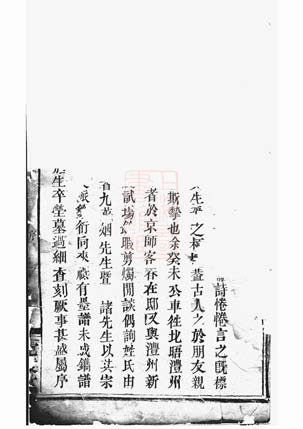 詩惓惓言之旣標
生平之 蓋古人之於朋友親
斯摯也余癸未公車徃北晤澧州
者於京師客春在邸又與澧州新
試塲 暇剪燭閒談偶詢姓氏由
九 烟先生暨 諸先生以其宗
銜同來 藏有墨譜未成鐫譜
生卒塋墓逈細查刻厥事甚盛屬序